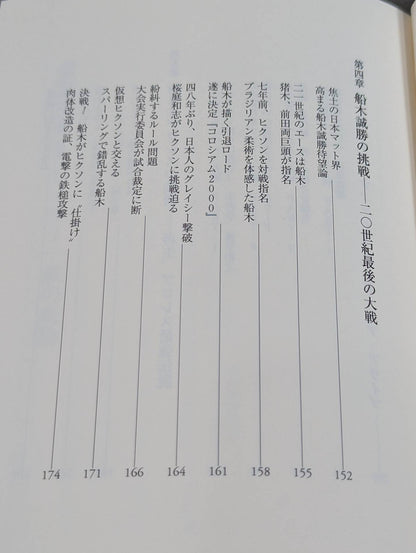 第四章 船木誠勝の挑戦――二〇世紀最後の大戦
焦土の日本マット界
高まる船木誠勝待望論
152
二一世紀のエースは船木
猪木、前田両巨頭が指名
155
七年前、ヒクソンを対戦指名
ブラジリアン柔術を体感した船木
158
船木が描く引退ロード
遂に決定『コロシアム2000』
161
四八年ぶり、日本人のグレイシー撃破
桜庭和志がヒクソンに挑戦迫る
164
紛糾するルール問題
大会実行委員会が試合裁定に断
166
仮想ヒクソンと交える
スパーリングで錯乱する船木
171
決戦！ 船木がヒクソンに〝仕掛け〟
肉体改造の証、電撃の鉄槌攻撃
174